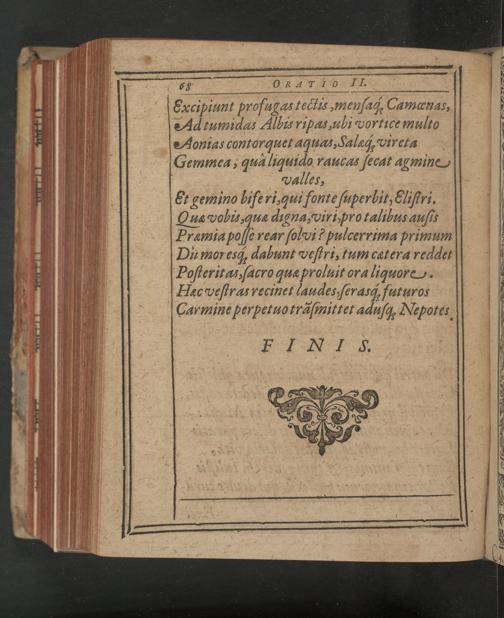 68 ORATIO II.
Excipiunt profugas tectis, mensaq́; Camœnas,
Ad tumidas Albis ripas, ubi vortice multo
Aonias contorquet aquas, Salæq́; vireta
Gemmea, quà liquido raucas secat agmine
valles,
Et gemino biferi, qui fonte superbit, Elistri.
Quæ vobis, quæ digna, viri, pro talibus ausis
Præmia posse rear solvi? pulcerrima primum
Dii moresq́; dabunt vestri, tum cætera reddet
Posteritas, sacro quæ proluit ora liquore.
Hæc vestras recinet laudes, serasq́; futuros
Carmine perpetuo trãsmittet adusq́; Nepotes.
FINIS.